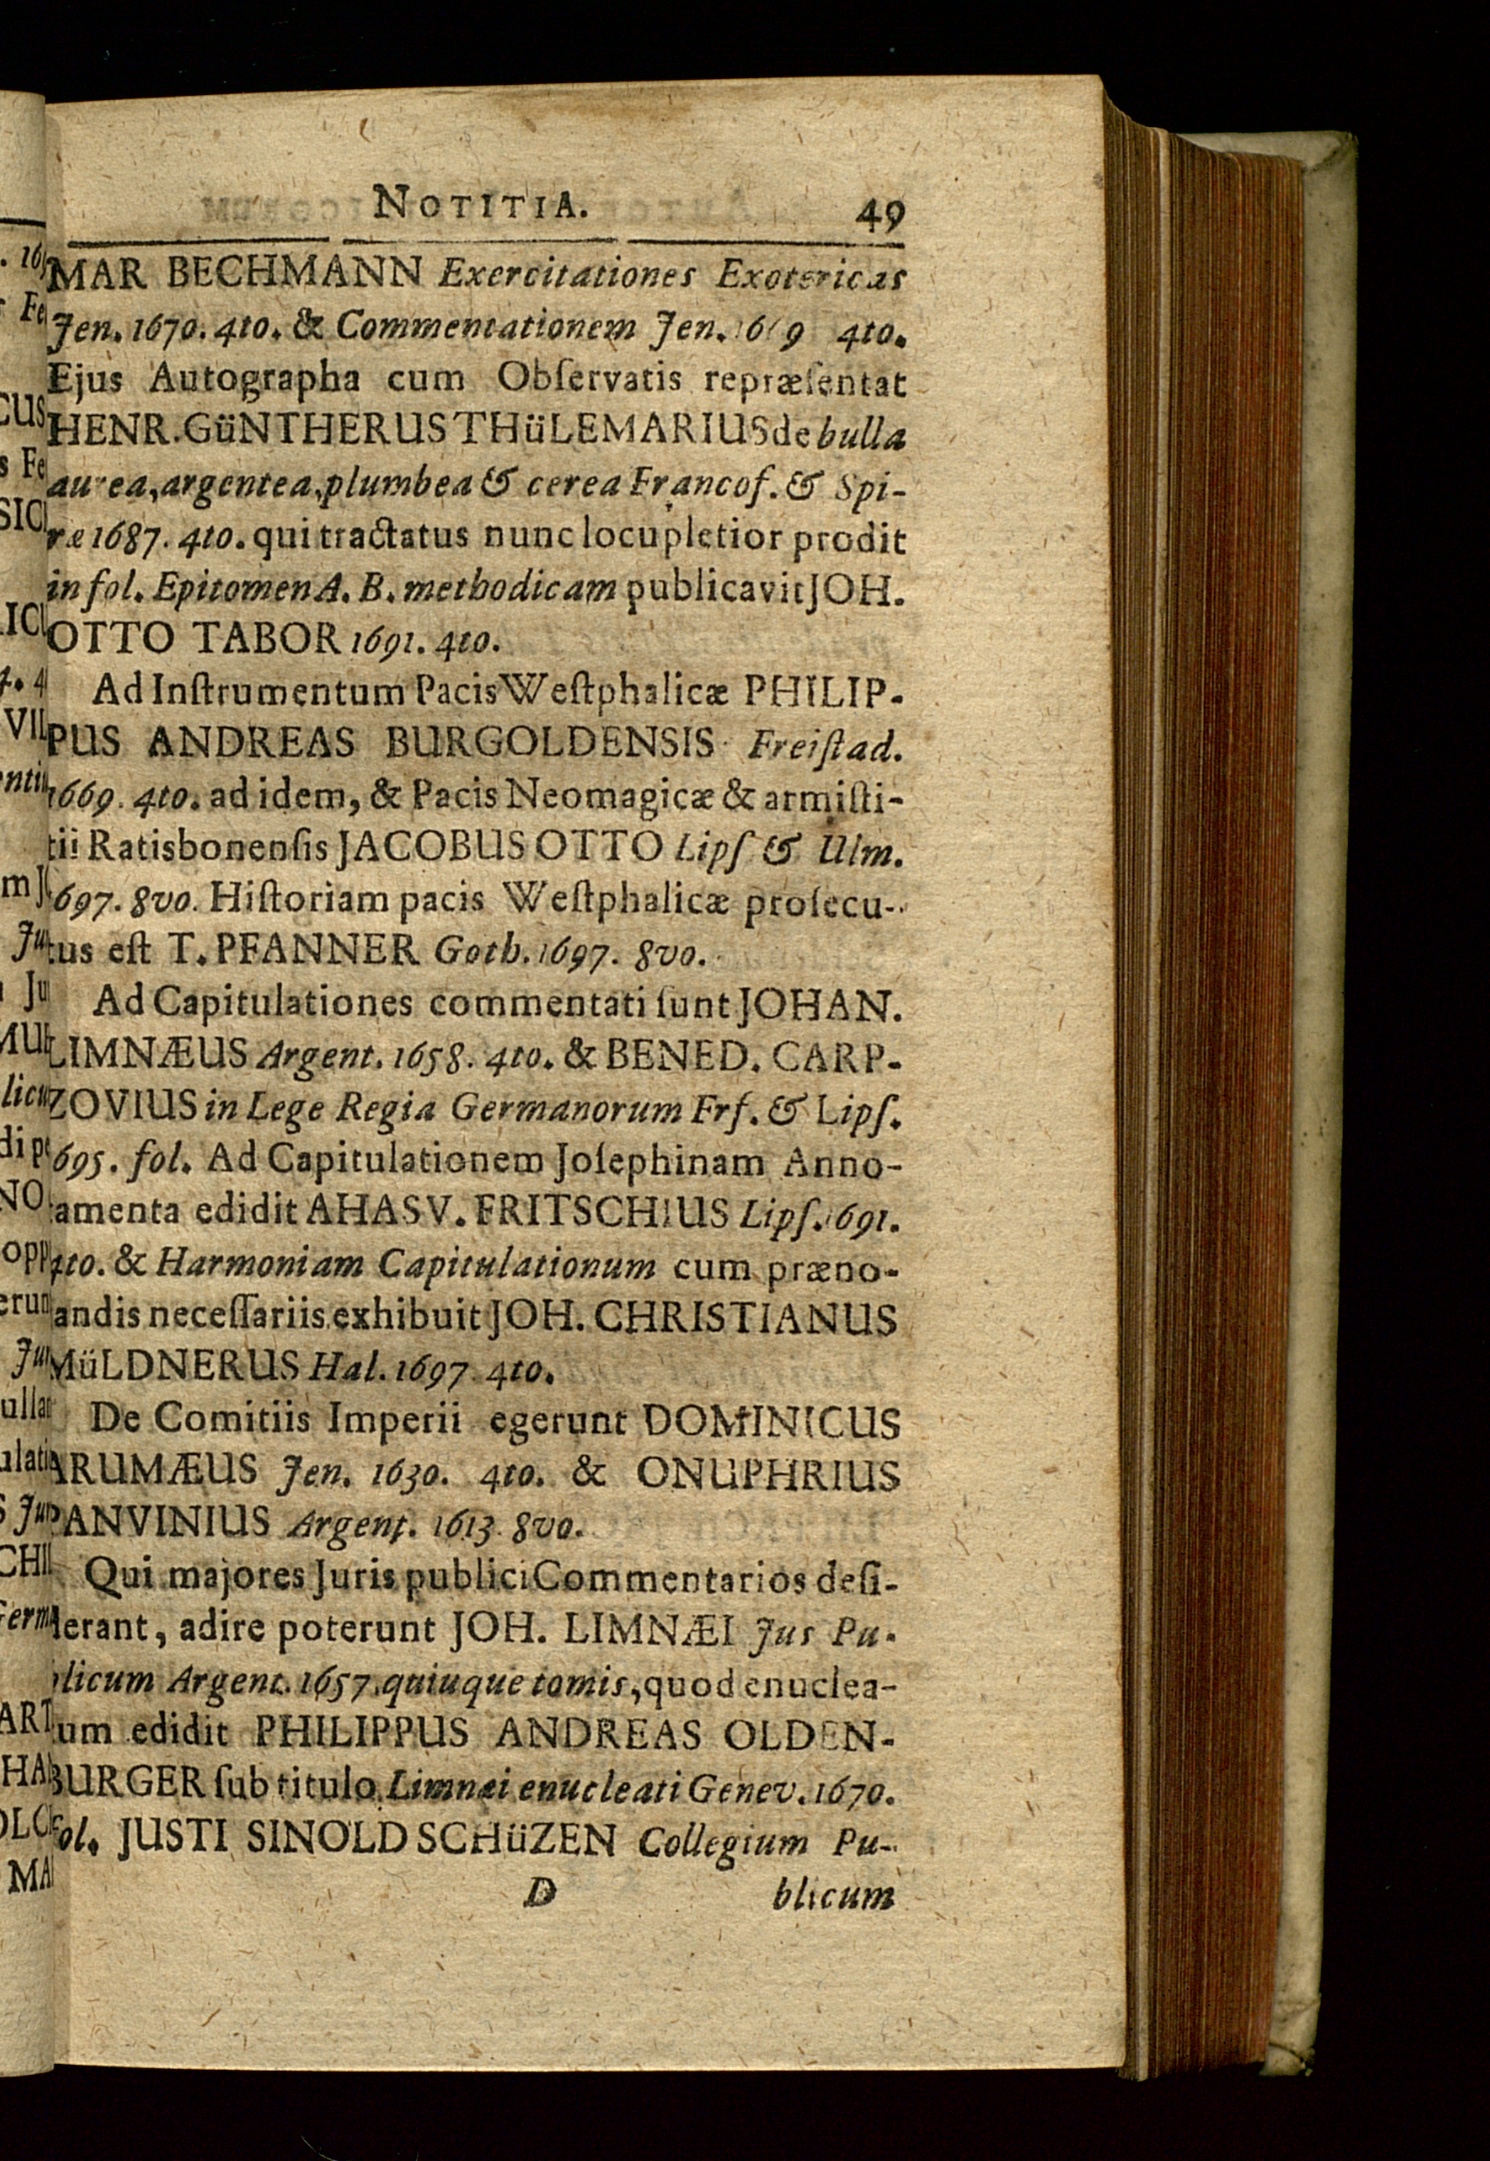 NOTITIA. 49
MAR BECHMANN Exercitationes Exotericas
Jen. 1670. 4to. & Commentationem Jen. 4to.
Ejus Autographa cum Obſervatis repræſentat
HENR. GüNTHERUS THüLEMARIUS de bulla
aurea, argentea, plumbea & cerea Francof. & Spi-
ræ 1687. 4to. qui tractatus nunc locupletior prodit
in fol. Epitomen A. B. methodicam publicavit JOH.
OTTO TABOR 1691. 4to.
Ad Inſtrumentum Pacis Weſtphalicæ PHILIP-
PUS ANDREAS BURGOLDENSIS Freiſtad.
1669. 4to. ad idem, & Pacis Neomagicæ & armiſti-
tii Ratisbonenſis JACOBUS OTTO Lipſ & Ulm.
697. 8vo. Hiſtoriam pacis Weſtphalicæ proſecu-
tus eſt T. PFANNER Goth. 1697. 8vo.
Ad Capitulationes commentati ſunt JOHAN.
LIMNÆUS Argent. 1658. 4to. & BENED. CARP-
ZOVIUS in Lege Regia Germanorum Frf. & Lipſ.
695. fol. Ad Capitulationem Joſephinam Anno-
tamenta edidit AHASV. FRITSCHIUS Lipſ. 1691.
4to. & Harmoniam Capitulationum cum præno-
andis neceſſariis exhibuit JOH. CHRISTIANUS
MüLDNERUS Hal. 1697. 4to.
De Comitiis Imperii egerunt DOMINICUS
ARUMÆUS Jen. 1630. 4to. & ONUPHRIUS
PANVINIUS Argent. 1613. 8vo.
Qui majores Juris publici Commentarios deſi-
derant, adire poterunt JOH. LIMNÆI Jus Pu-
blicum Argent. 1657. quiuque tomis, quod enuclea-
tum edidit PHILIPPUS ANDREAS OLDEN-
BURGER ſub titulo Limnæi enucleati Genev. 1670.
fol. JUSTI SINOLD SCHüZEN Collegium Pu-
D blicum